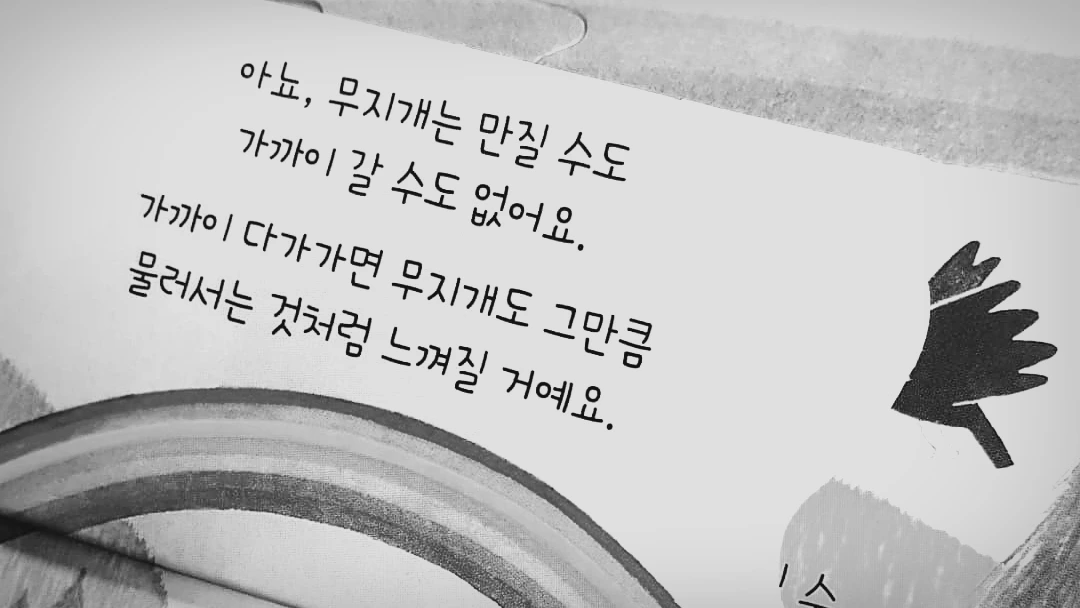 아뇨, 무지개는 만질 수도
가까이 갈 수도 없어요.
가까이 다가가면 무지개도 그만큼
물러서는 것처럼 느껴질 거예요.